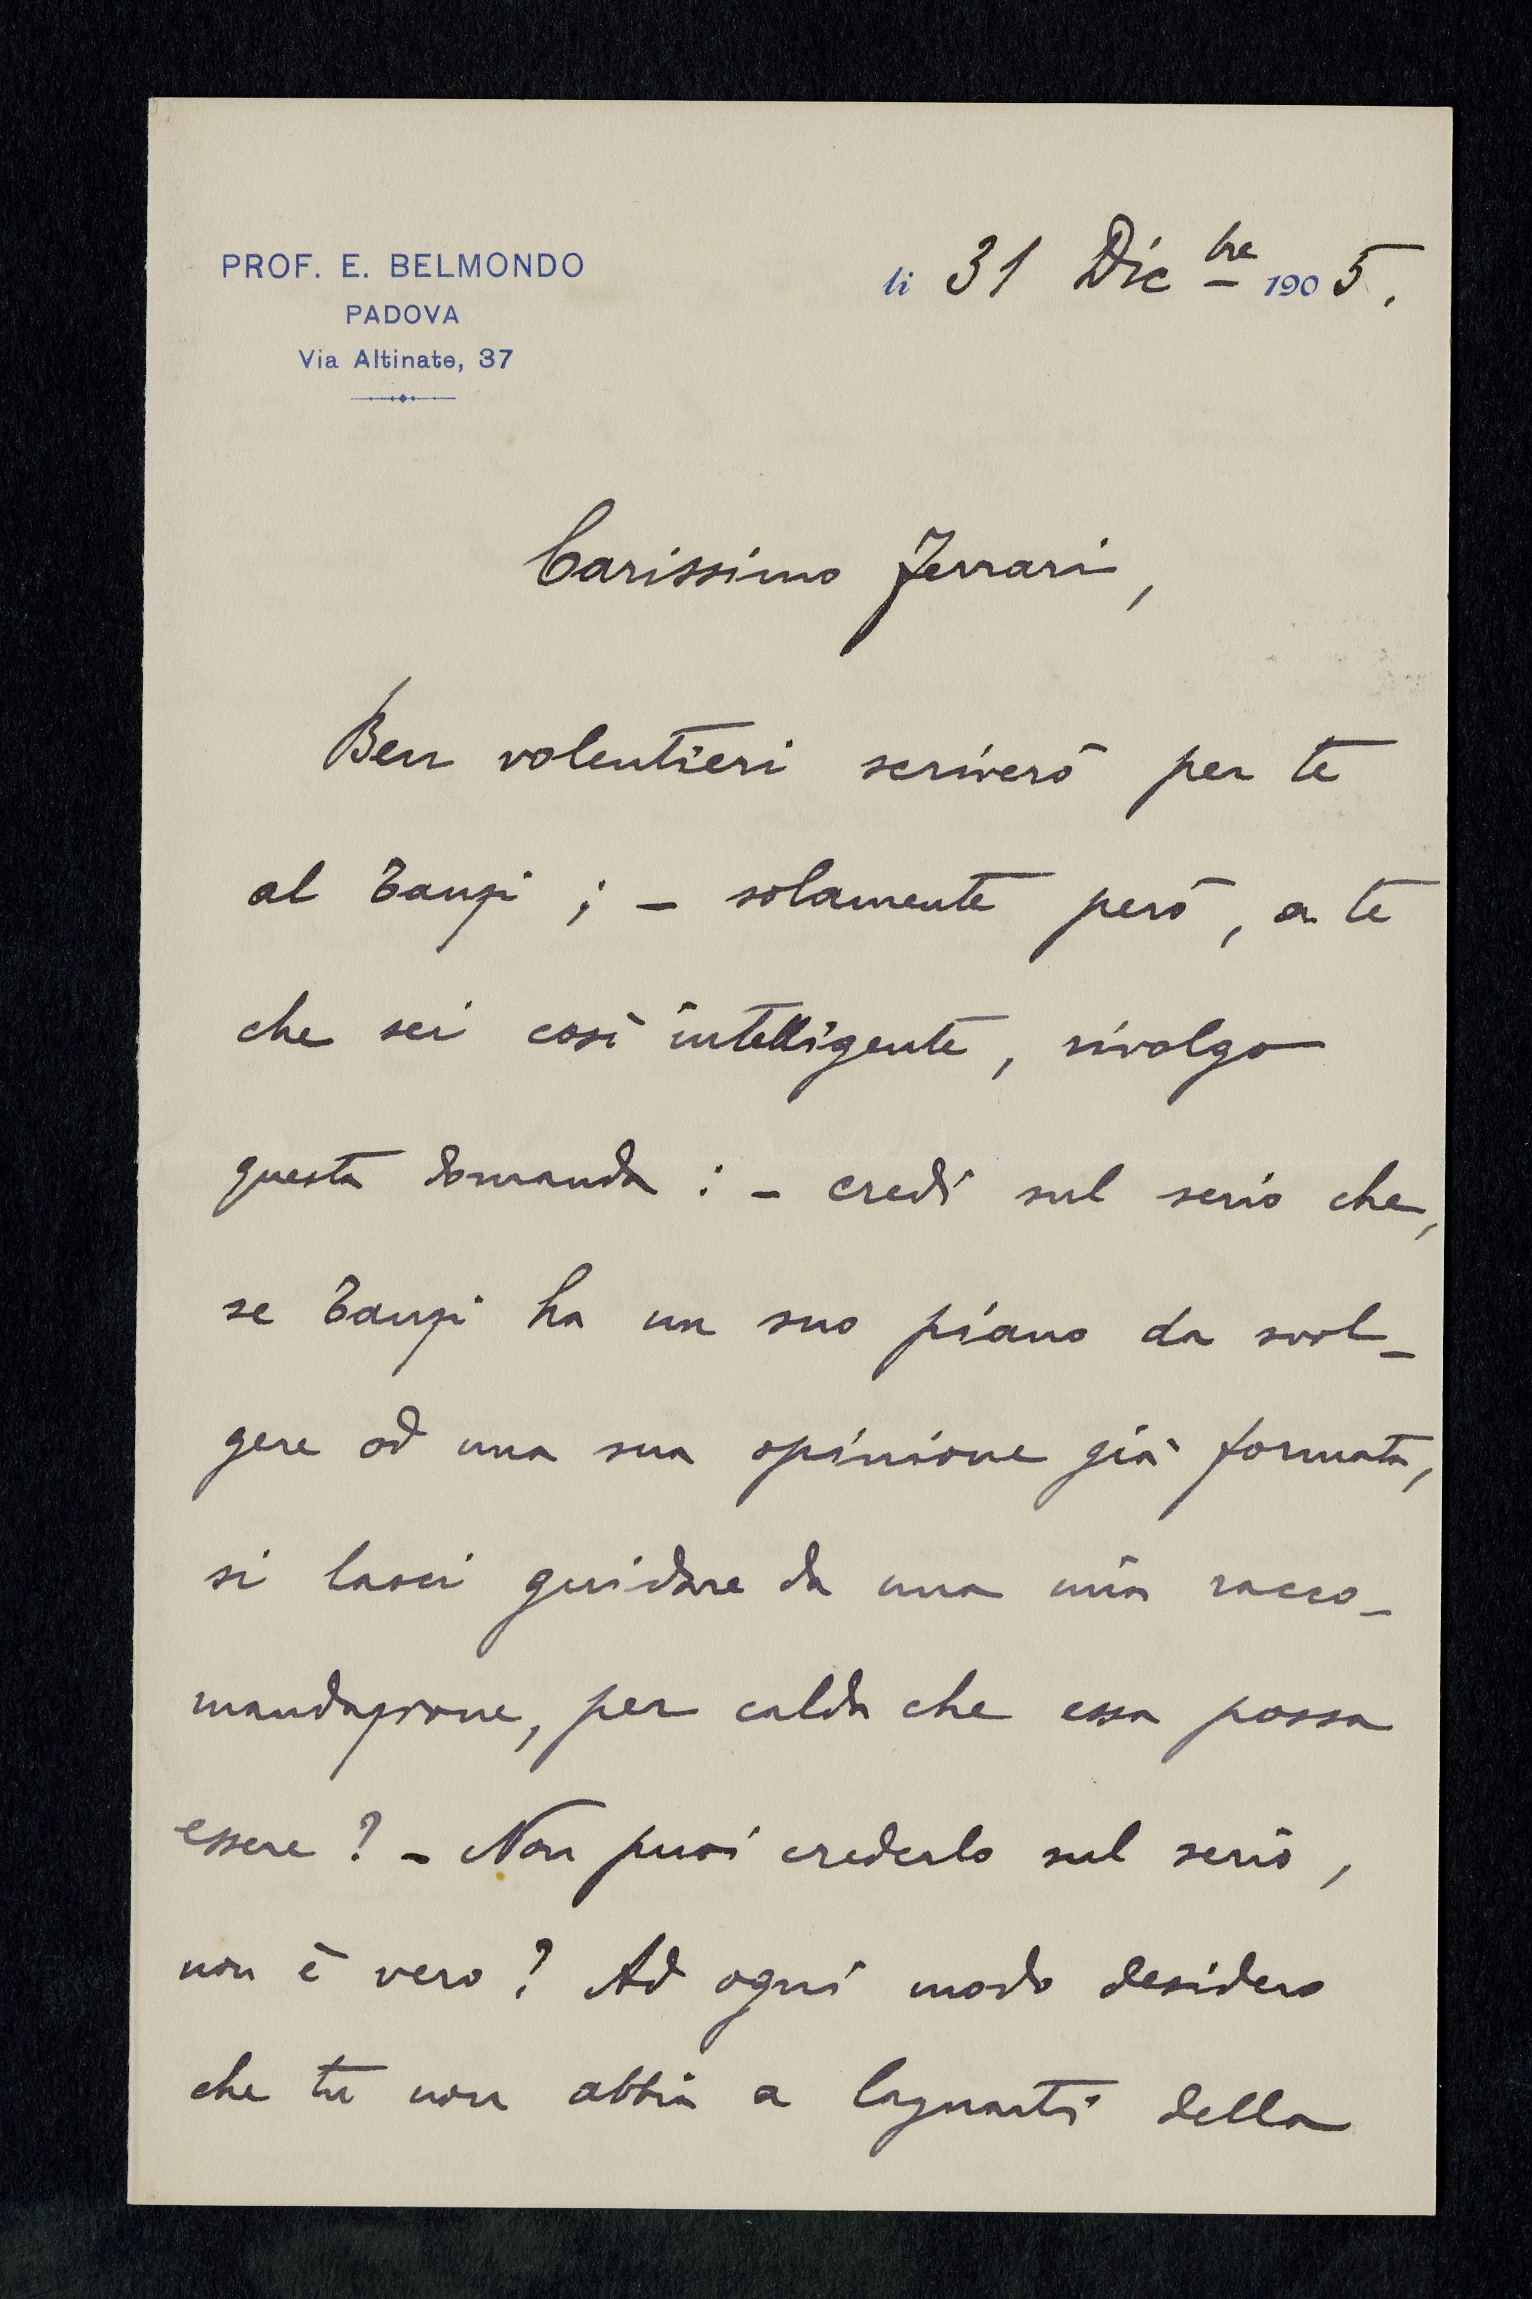 PROF. E. BELMONDO
PADOVA
Via Altinate, 37
li 31 Dic bre 1905.
Carissimo Ferrari,
Ben volentieri scriverò per te
al Tanzi ; – solamente però, a te
che sei così intelligente, rivolgo
questa domanda : – credi sul serio che,
se Tanzi ha un suo piano da svol-
gere od una sua opinione già formata,
si lasci guidare da una mia racco-
mandazione, per calda che essa possa
essere ? – Non puoi crederlo sul serio,
non è vero ? Ad ogni modo desidero
che tu non abbia a lagnarti della